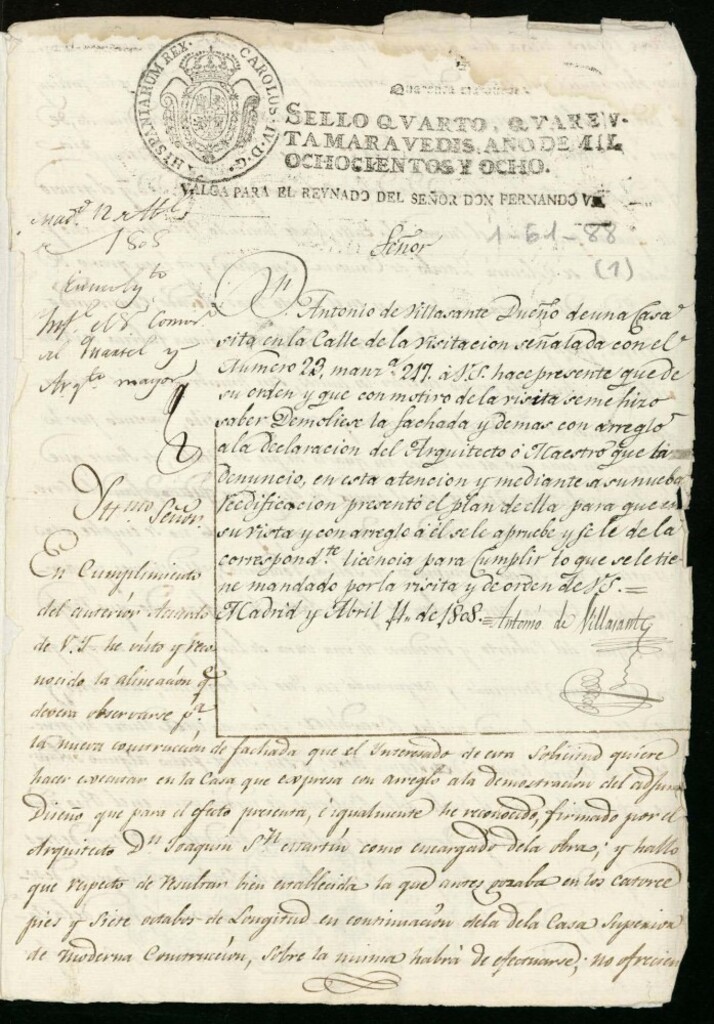 HISPANIARUM REX. CAROLUS IV. D. G.
Quarenta maravedis.
SELLO QVARTO, QVAREN-
TA MARAVEDIS, AÑO DE MIL
OCHOCIENTOS Y OCHO.
VALGA PARA EL REYNADO DEL SEÑOR DON FERNANDO VII
1-61-88
(1)
Señor
Madd. 12 de Abl
de 1808
Ynfe. el Sr. Comiso.
al Quartel y
Arqto. mayor
Dn. Antonio de Villasante Dueño de una Casa
sita en la Calle de la Visitacion señalada con el
Numero 23, manza. 217. á V.S. hace presente que de
su orden y que con motivo de la visita se me hizo
saber Demoliese la fachada y demas con arreglo
a la declaracion del Arquitecto ó Maestro que la
denuncio, en esta atencion y mediante a su nueba
reedificacion presentó el plan de ella para que en
su vista y con arreglo á él se le apruebe y se le de la
correspondte. licencia para Cumplir lo que se le tie-
ne mandado por la visita y de orden de V.S. =
Madrid y Abril 11, de 1808. = Antonio de Villasante
Yllmo. Señor
En Cumplimiento
del anterior Acuerdo
de V.I. he visto y reco-
nocido la alineación q.
devera observarse pa.
la nueva construcción de fachada que el Interesado de esta Solicitud quiere
hacer executar en la Casa que expresa con arreglo a la demostración del adjunto
Diseño que para el efecto presenta, é igualmente he reconocido, firmado por el
Arquitecto Dn. Joaquin Sn. Martin como encargado de la obra; y hallo
que respecto de resultar bien establecida la que antes gozaba en los catorce
pies y siete octabos de Longitud en continuación de la de la Casa Superior
de moderna Construcción, sobre la misma habrá de efectuarse; no ofrecien